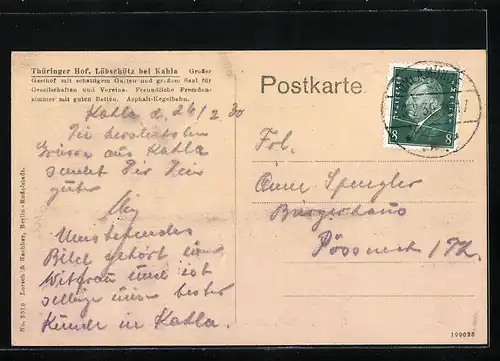 Thüringer Hof, Löbschütz bei Kahla Großer
Gasthof mit schattigem Garten und großem Saal für
Gesellschaften und Vereine. Freundliche Fremden-
zimmer mit guten Betten. Asphalt-Kegelbahn.
Postkarte
DEUTSCHES REICH
8 8
Kahla d. 26/2 30
Die herzlichsten
Grüsse aus Kahla
sendet Dir Dein
guter
Umstehendes
Bild gehört einer
Witfrau und ist
selbige unser bester
Kunde in Kahla.
Frl.
Spengler
Bürgerhaus
Pössneck i/Th.
No. 3519 Lorsch & Nachbar, Berlin-Rudolstadt.
199028